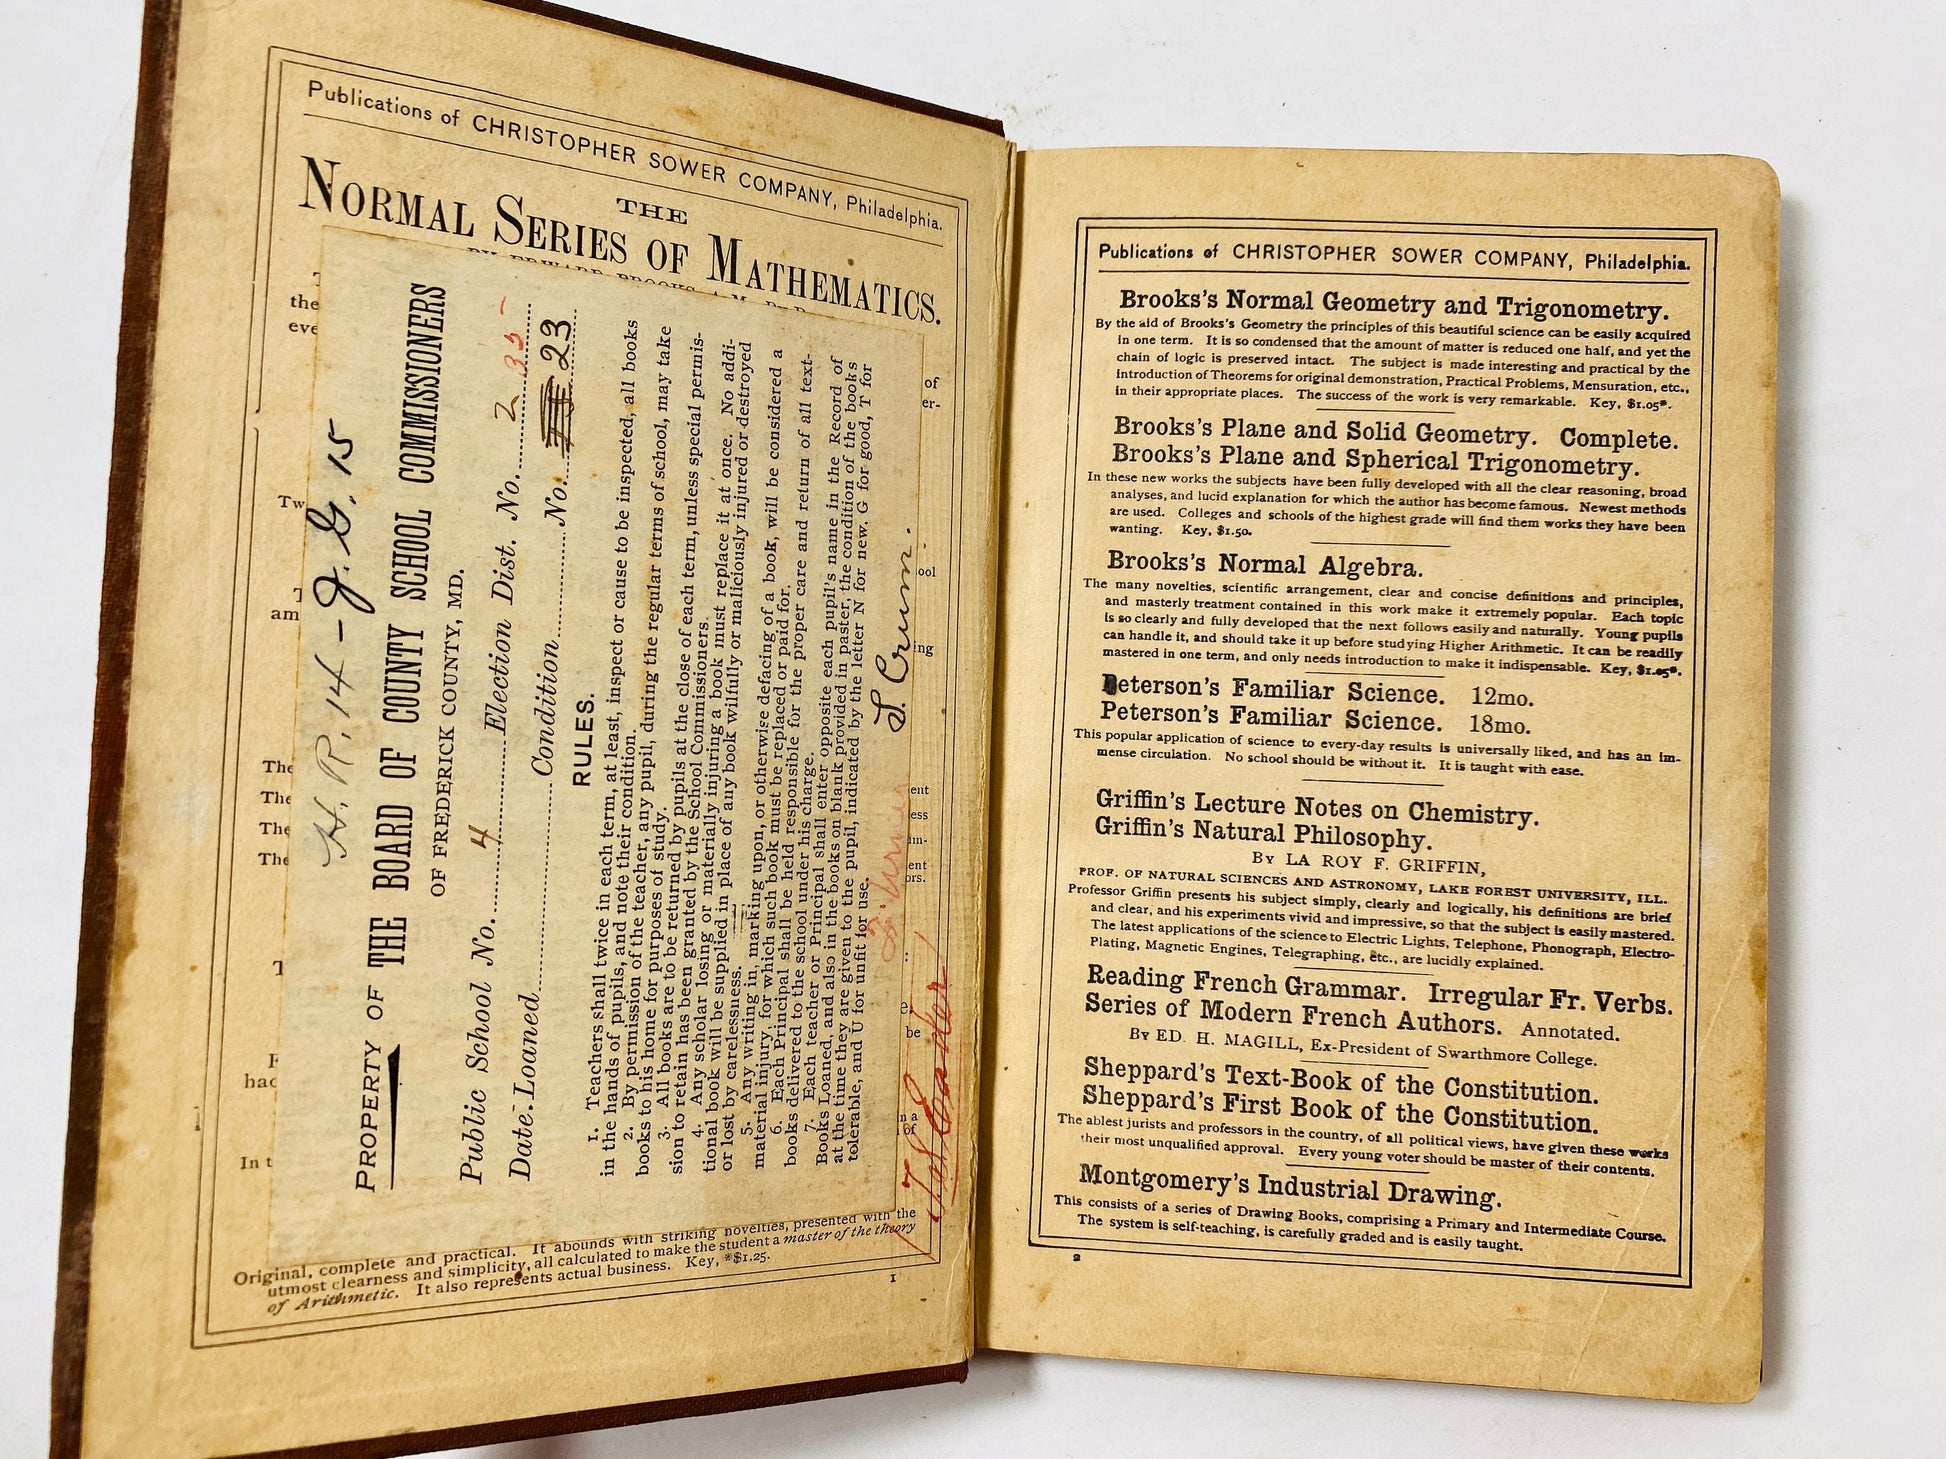 Publications of CHRISTOPHER SOWER COMPANY, Philadelphia.
THE
NORMAL SERIES OF MATHEMATICS.
H. R. 14 - J. G. 15
PROPERTY OF THE BOARD OF COUNTY SCHOOL COMMISSIONERS
OF FREDERICK COUNTY, MD.
Public School No. 4 Election Dist. No. 2 35
Date Loaned Condition No. 23
RULES.
1. Teachers shall twice in each term, at least, inspect or cause to be inspected, all books
in the hands of pupils, and note their condition.
2. By permission of the teacher, any pupil, during the regular terms of school, may take
books to his home for purposes of study.
3. All books are to be returned by pupils at the close of each term, unless special permis-
sion to retain has been granted by the School Commissioners.
4. Any scholar losing or materially injuring a book must replace it at once. No addi-
tional book will be supplied in place of any book wilfully or maliciously injured or destroyed
or lost by carelessness.
5. Any writing in, marking upon, or otherwise defacing of a book, will be considered a
material injury, for which such book must be replaced or paid for.
6. Each Principal shall be held responsible for the proper care and return of all text-
books delivered to the school under his charge.
7. Each teacher or Principal shall enter opposite each pupil's name in the Record of
Books Loaned, and also in the books on blank provided in paster, the condition of the books
at the time they are given to the pupil, indicated by the letter N for new, G for good, T for
tolerable, and U for unfit for use.
S. Crum.
Original, complete and practical. It abounds with striking novelties, presented with the
utmost clearness and simplicity, all calculated to make the student a master of the theory
of Arithmetic. It also represents actual business. Key, *$1.25.
1
Publications of CHRISTOPHER SOWER COMPANY, Philadelphia.
Brooks's Normal Geometry and Trigonometry.
By the aid of Brooks's Geometry the principles of this beautiful science can be easily acquired
in one term. It is so condensed that the amount of matter is reduced one half, and yet the
chain of logic is preserved intact. The subject is made interesting and practical by the
introduction of Theorems for original demonstration, Practical Problems, Mensuration, etc.,
in their appropriate places. The success of the work is very remarkable. Key, $1.05*.
Brooks's Plane and Solid Geometry. Complete.
Brooks's Plane and Spherical Trigonometry.
In these new works the subjects have been fully developed with all the clear reasoning, broad
analyses, and lucid explanation for which the author has become famous. Newest methods
are used. Colleges and schools of the highest grade will find them works they have been
wanting. Key, $1.50.
Brooks's Normal Algebra.
The many novelties, scientific arrangement, clear and concise definitions and principles,
and masterly treatment contained in this work make it extremely popular. Each topic
is so clearly and fully developed that the next follows easily and naturally. Young pupils
can handle it, and should take it up before studying Higher Arithmetic. It can be readily
mastered in one term, and only needs introduction to make it indispensable. Key, $1.05*.
Peterson's Familiar Science. 12mo.
Peterson's Familiar Science. 18mo.
This popular application of science to every-day results is universally liked, and has an im-
mense circulation. No school should be without it. It is taught with ease.
Griffin's Lecture Notes on Chemistry.
Griffin's Natural Philosophy.
BY LA ROY F. GRIFFIN,
PROF. OF NATURAL SCIENCES AND ASTRONOMY, LAKE FOREST UNIVERSITY, ILL.
Professor Griffin presents his subject simply, clearly and logically, his definitions are brief
and clear, and his experiments vivid and impressive, so that the subject is easily mastered.
The latest applications of the science to Electric Lights, Telephone, Phonograph, Electro-
Plating, Magnetic Engines, Telegraphing, etc., are lucidly explained.
Reading French Grammar. Irregular Fr. Verbs.
Series of Modern French Authors. Annotated.
BY ED. H. MAGILL, Ex-President of Swarthmore College.
Sheppard's Text-Book of the Constitution.
Sheppard's First Book of the Constitution.
The ablest jurists and professors in the country, of all political views, have given these works
their most unqualified approval. Every young voter should be master of their contents.
Montgomery's Industrial Drawing.
This consists of a series of Drawing Books, comprising a Primary and Intermediate Course.
The system is self-teaching, is carefully graded and is easily taught.
2